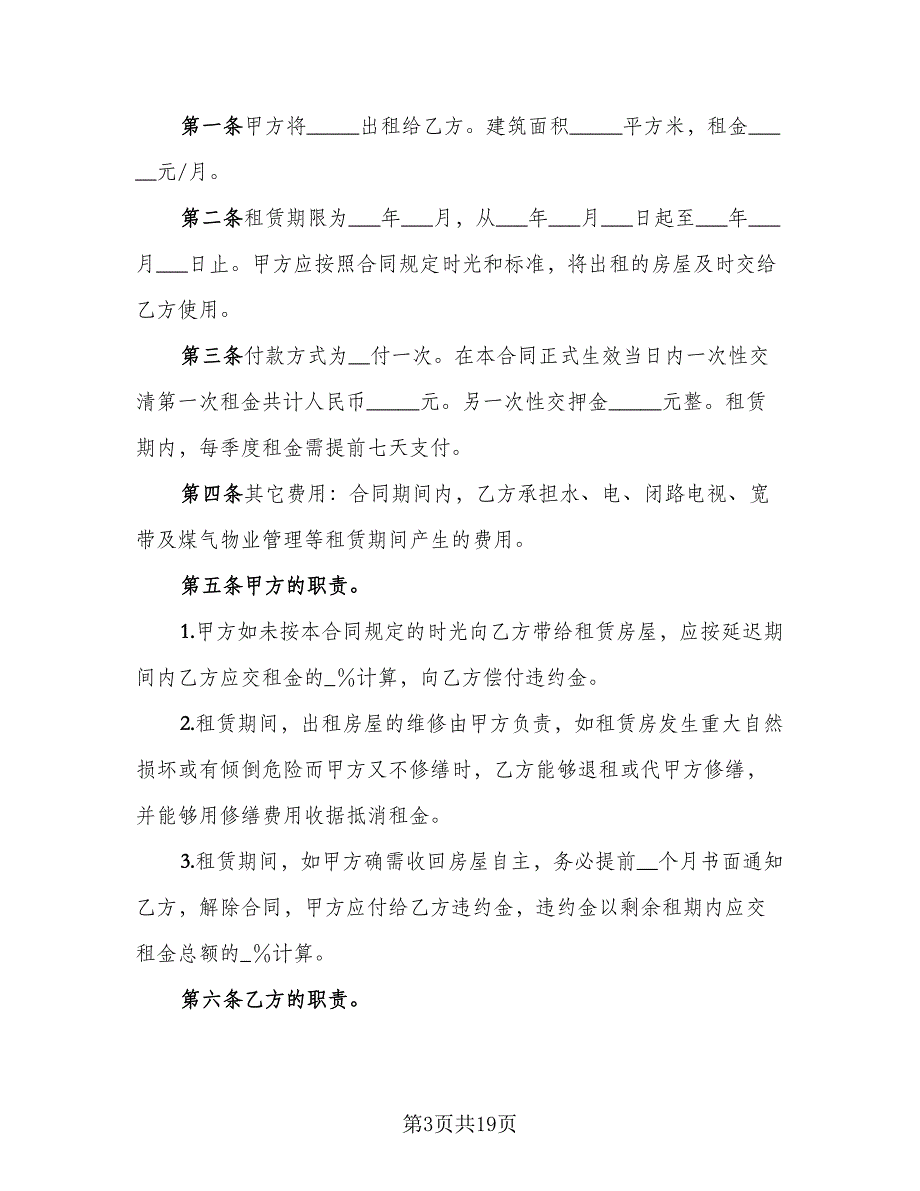 第一条甲方将_____出租给乙方。建筑面积_____平方米，租金___
__元/月。
第二条租赁期限为___年___月，从___年___月___日起至___年___
月___日止。甲方应按照合同规定时光和标准，将出租的房屋及时交给
乙方使用。
第三条付款方式为__付一次。在本合同正式生效当日内一次性交
清第一次租金共计人民币_____元。另一次性交押金_____元整。租赁
期内，每季度租金需提前七天支付。
第四条其它费用：合同期间内，乙方承担水、电、闭路电视、宽
带及煤气物业管理等租赁期间产生的费用。
第五条甲方的职责。
1.甲方如未按本合同规定的时光向乙方带给租赁房屋，应按延迟期
间内乙方应交租金的_%计算，向乙方偿付违约金。
2.租赁期间，出租房屋的维修由甲方负责，如租赁房发生重大自然
损坏或有倾倒危险而甲方又不修缮时，乙方能够退租或代甲方修缮，
并能够用修缮费用收据抵消租金。
3.租赁期间，如甲方确需收回房屋自主，务必提前__个月书面通知
乙方，解除合同，甲方应付给乙方违约金，违约金以剩余租期内应交
租金总额的_%计算。
第六条乙方的职责。
第3页共19页